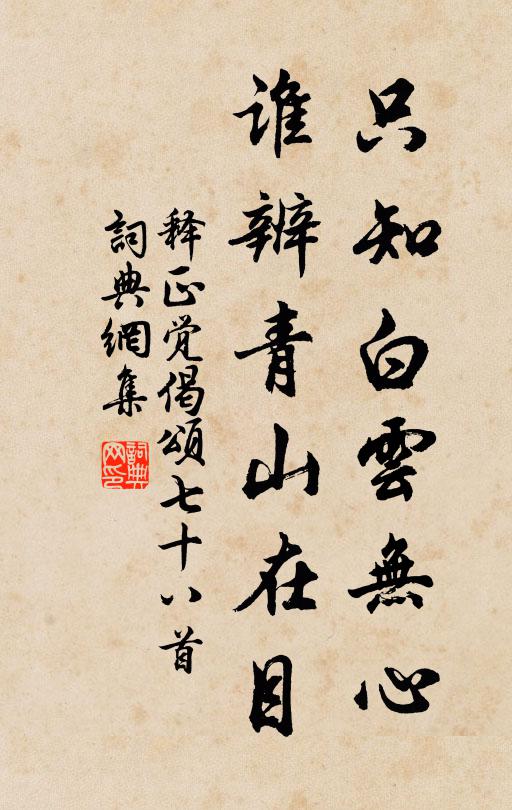 只知白雲無心
谁辨青山在目
释正觉偈頌七十八首
詞典網集
詞典网印